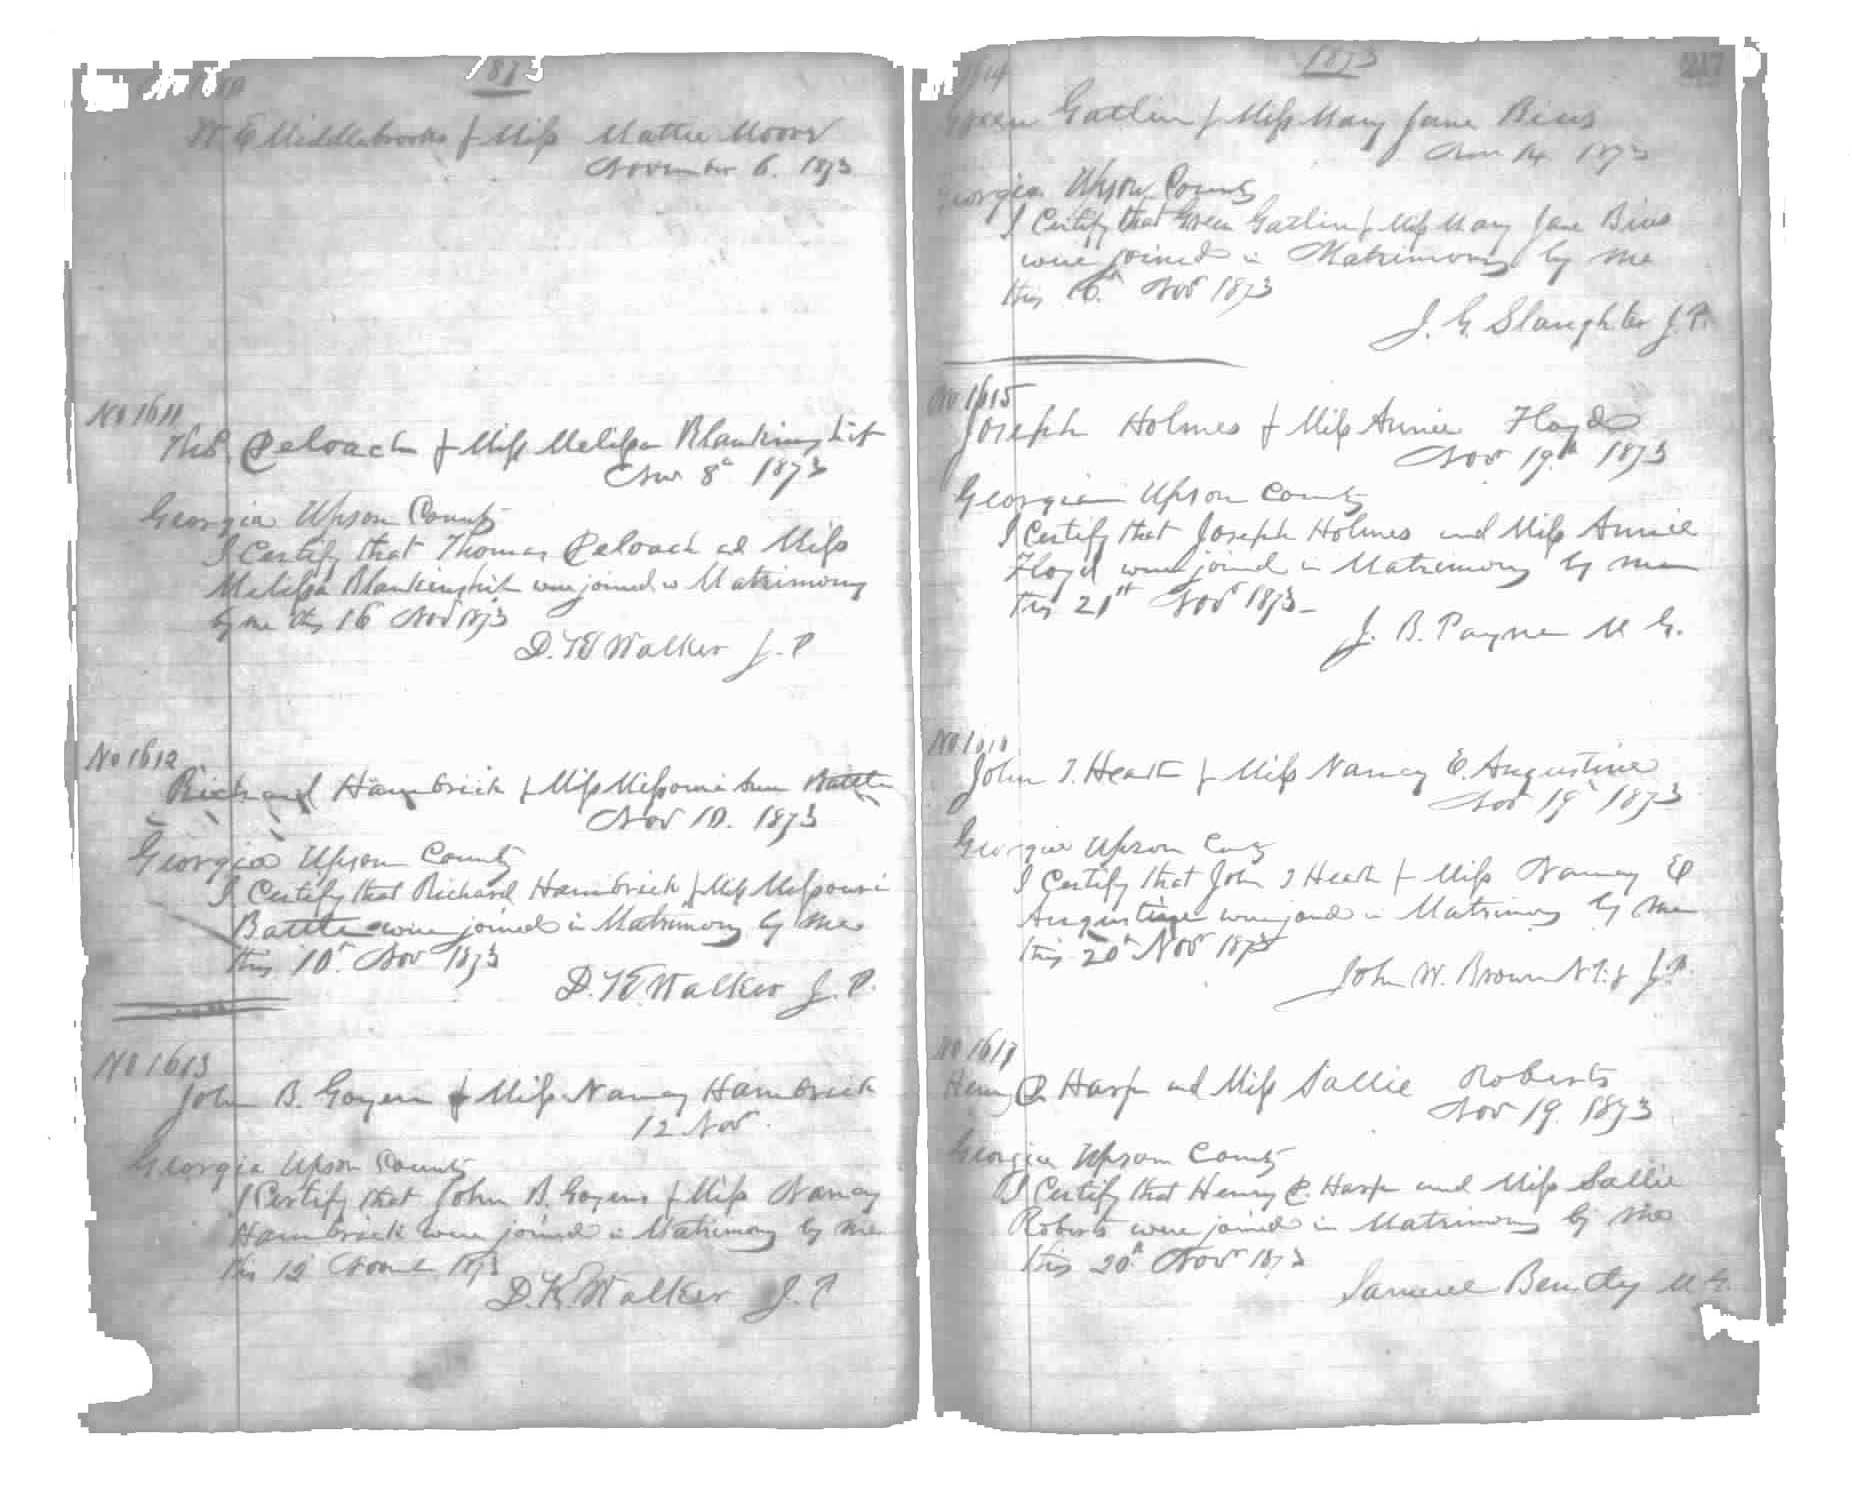 1873
W E Middlebrooks & Miss Mattie Moore
November 6. 1873
No 1611
Thos Deloach & Miss Melissa Blankinship
Nov 8th 1873
Georgia Upson County
I Certify that Thomas Deloach ad Miss
Melissa Blankinship were joined in Matrimony
by me this 16 Nov 1873
Walker J. P
No 1612
Richard Hambrick & Miss Missouri Ann Battle
Nov 10. 1873
Georgia Upson County
I Certify that Richard Hambrick & Miss Missouri
Battle were joined in Matrimony by me
this 10th Nov 1873
Walker J. P.
No 1613
John B. Goyen & Miss Nancy Hambrick
12 Nov.
Georgia Upson County
I Certify that John B. Goyens & Miss Nancy
Hambrick were joined in Matrimony by me
this 12 1873
Walker J. P
1873
217
Green Gatlin & Miss Mary Jane Bius
Nov 14. 1873
Georgia Upson County
I Certify that Green Gatlin & Miss Mary Jane Bius
were joined in Matrimony by me
this 16th Nov 1873
J. G. Slaughter J. P.
No 1615
Joseph Holmes & Miss Annie Floyd
Nov 19th 1873
Georgia Upson County
I Certify that Joseph Holmes and Miss Annie
Floyd were joined in Matrimony by me
this 21st Nov 1873
J. B. Payne M. G.
John T. Heath & Miss Nancy E. Augustine
Nov 19th 1873
Georgia Upson County
I Certify that John T Heath & Miss Nancy E
Augustine were joined in Matrimony by me
this 20th Nov 1873
John W. Brown J. P.
No 1617
Henry P. Harp and Miss Sallie Roberts
Nov 19. 1873
Georgia Upson County
I Certify that Henry P. Harp and Miss Sallie
Roberts were joined in Matrimony by me
this 20th Nov 1873
Samuel Bentley M. G.